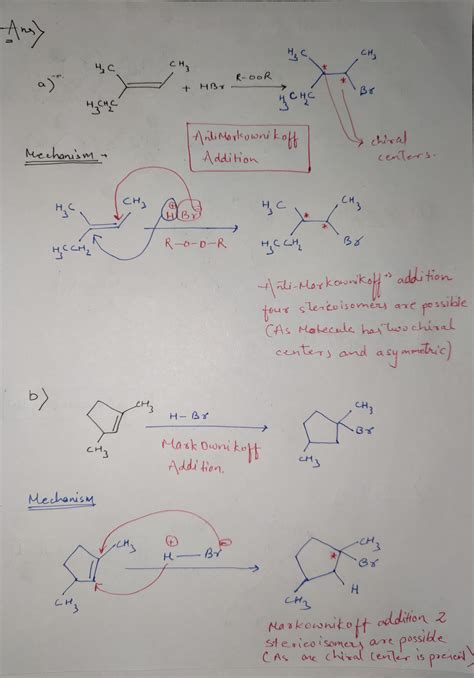 Ans)
a)
H₃C
CH₃
H₃CH₂C
+ HBr
R-OOR
H₃C
CH₃
H₃CH₂C
Br
*
*
chiral
centers.
AntiMarkownikoff
Addition
Mechanism →
H₃C
CH₃
H₃CCH₂
H
Br
R-O-O-R
H₃C
CH₃
H₃CCH₂
Br
*
*
Anti-Markownikoff's addition
four stereoisomers are possible
(As Molecule has two chiral
centers and asymmetric)
b)
CH₃
CH₃
H-Br
Markownikoff
Addition.
CH₃
Br
CH₃
Mechanism
CH₃
CH₃
+
H—Br
-
CH₃
Br
*
H
CH₃
Markownikoff addition 2
stereoisomers are possible
(As one chiral center is present)